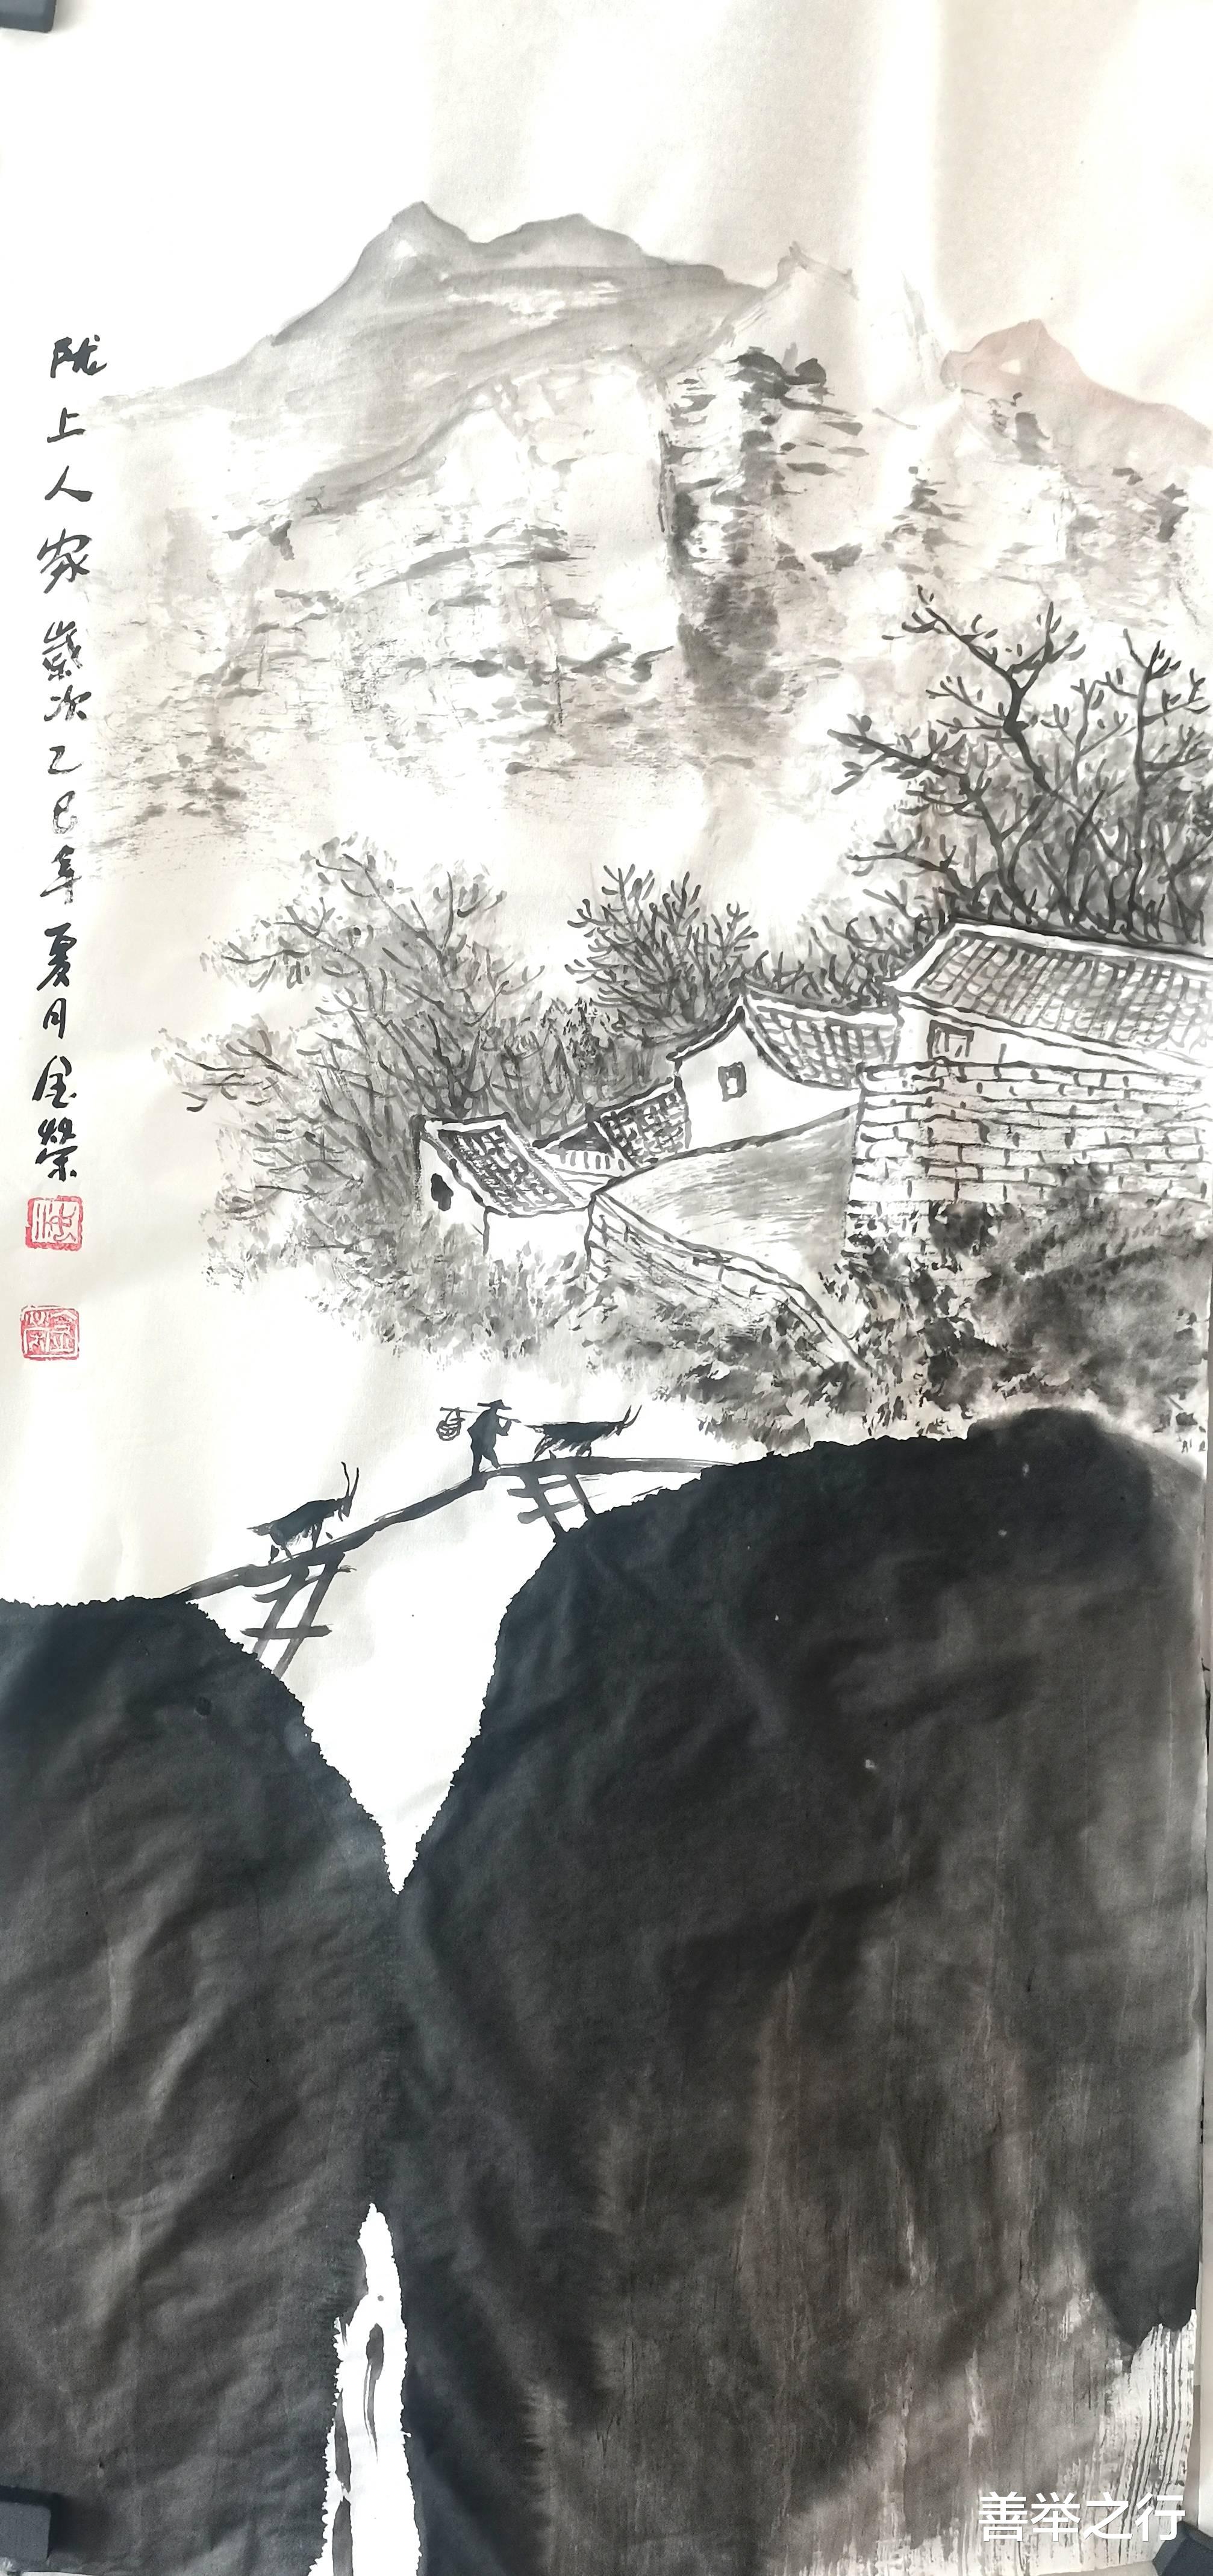 陇上人家 歲次乙巳年夏月金榮
善举之行